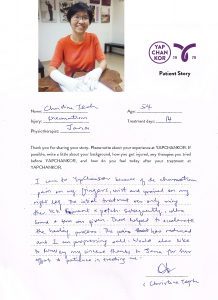 YAP
CHAN
KOR
Patient Story
Name: Christine Teoh
Age: 54
Injury: Rheumatism
Treatment days: 14
Physiotherapist: Janice
Thank you for sharing your story. Please write about your experience at YAPCHANKOR. If
possible, write a little about your background, how you get injured, any therapies you tried
before YAPCHANKOR, and how do you feel today after your treatment at
YAPCHANKOR.
I came to Yapchankor because of the rheumatism
pain on my fingers, wrist and
right leg. The initial treatment was only using
the
were given. These helped to accelerate
the healing process. The pain has reduced
and I am progressing well. Would also like
to convey my sincere thanks to Janice for her
effort & patience in treating me.
Christine Teoh